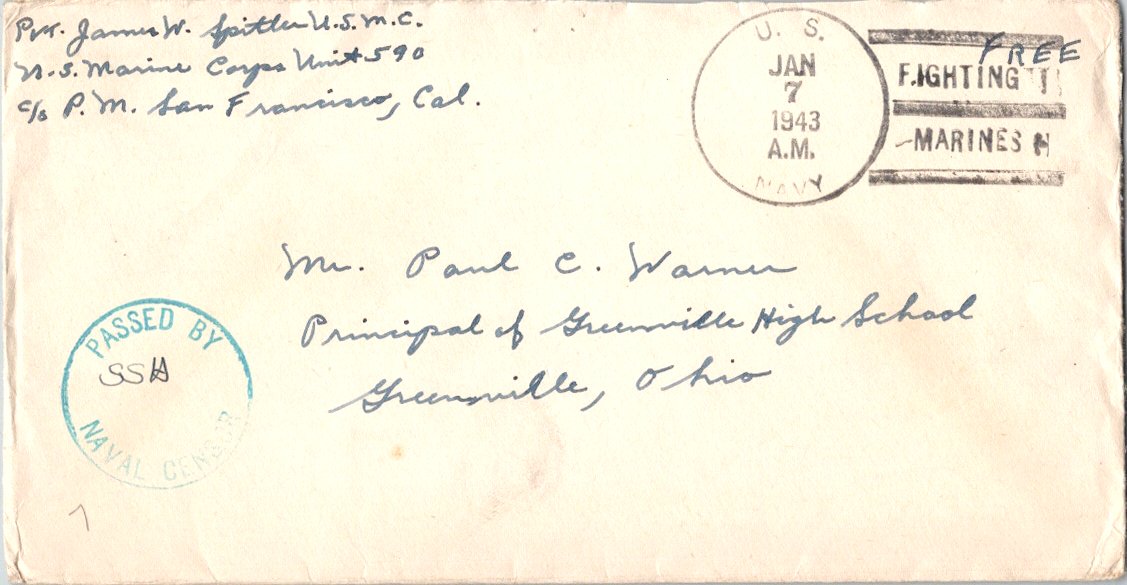 Pvt. James W. Spittler U.S.M.C.
U.S. Marine Corps Unit #590
c/o P.M. San Francisco, Cal.
U. S.
JAN
7
1943
A.M.
NAVY
FREE
FIGHTING
MARINES
Mr. Paul C. Warner
Principal of Greenville High School
Greenville, Ohio
PASSED BY
SSH
NAVAL CENSOR